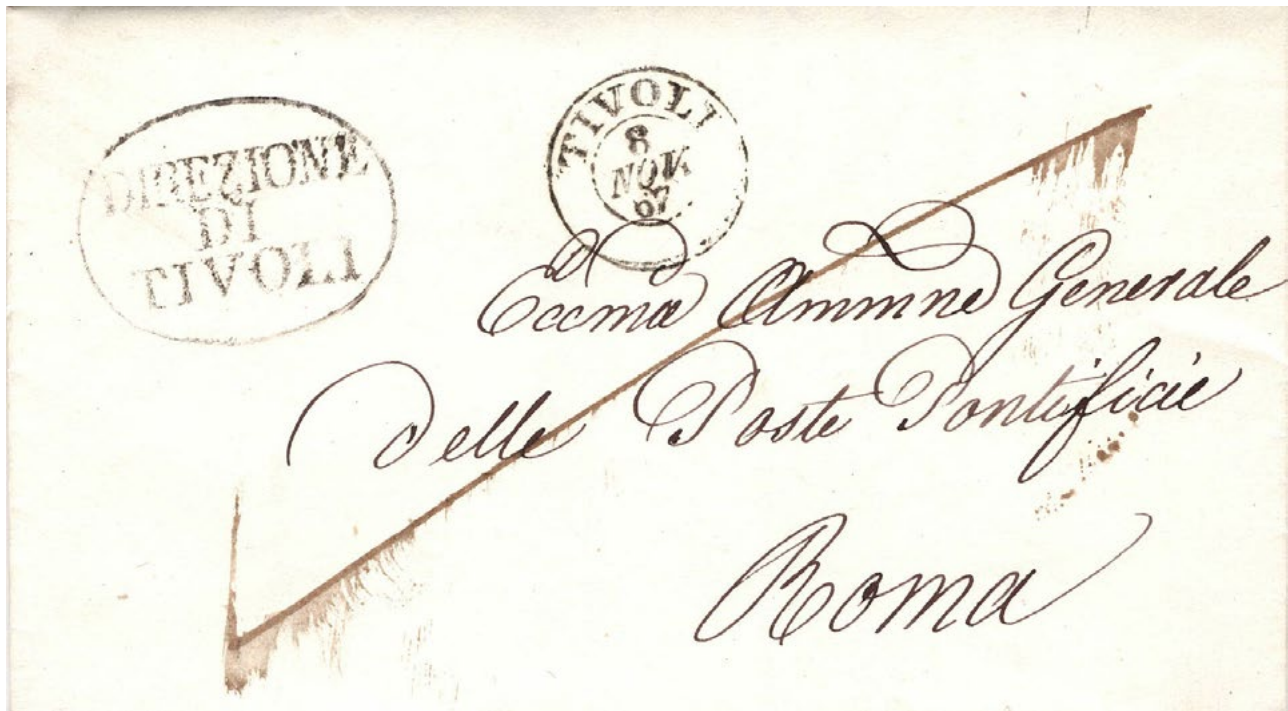 DIREZIONE
DI
TIVOLI
TIVOLI
8
NOV.
67
Eccma Ammne Generale
Delle Poste Pontificie
Roma